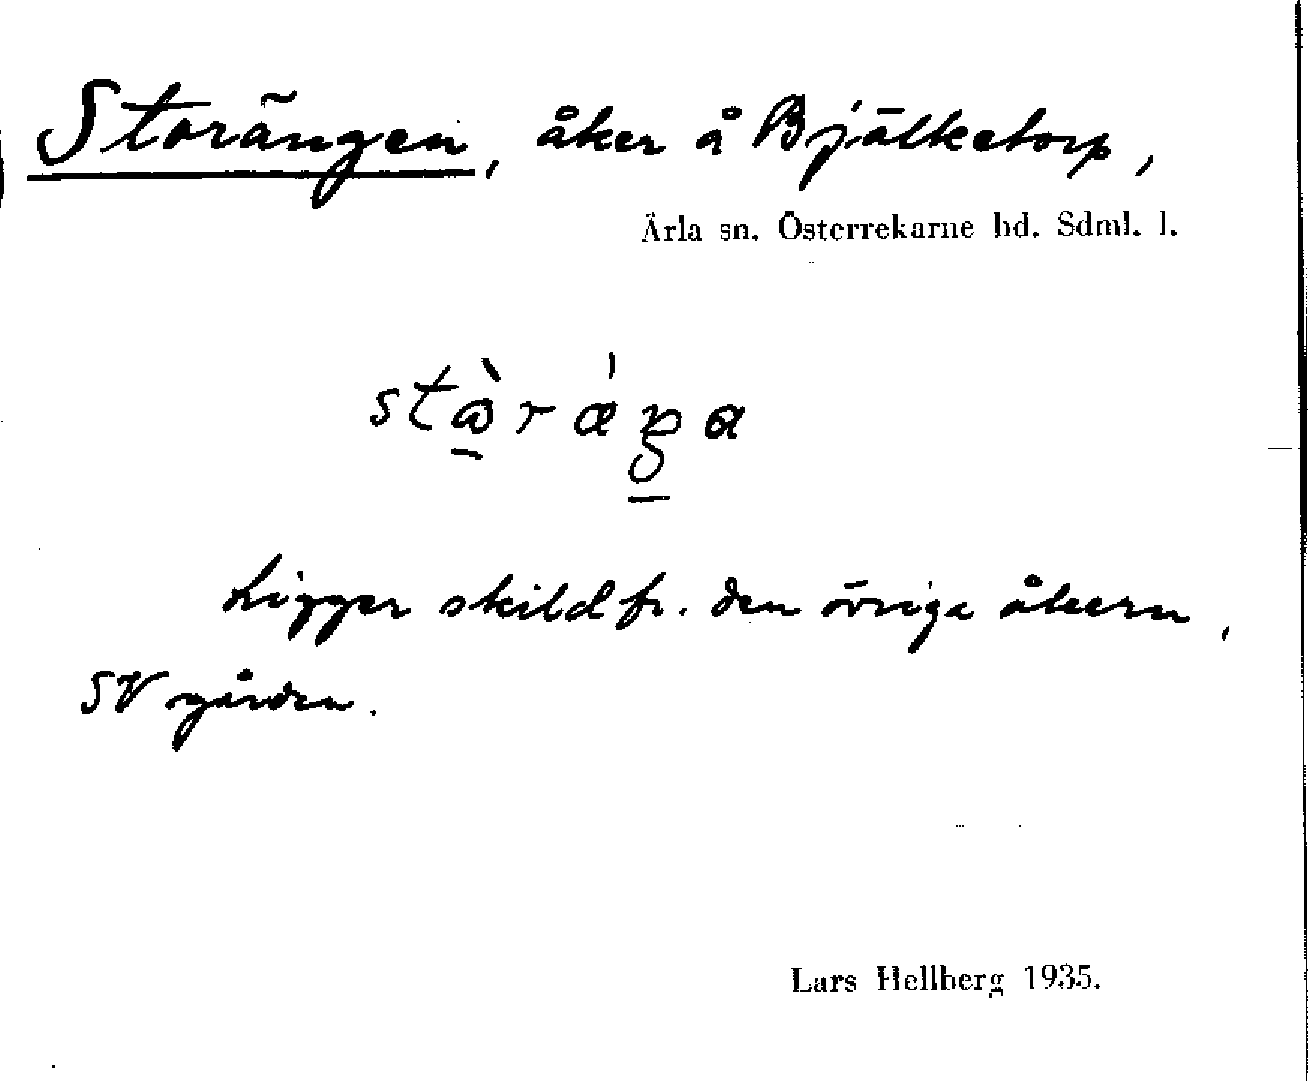 Storängen, åker å Bjälketorp,
Ärla sn. Österrekarne hd. Sdml. l.
Ligger skild fr. den övriga åkern,
SV gården.
Lars Hellberg 1935.